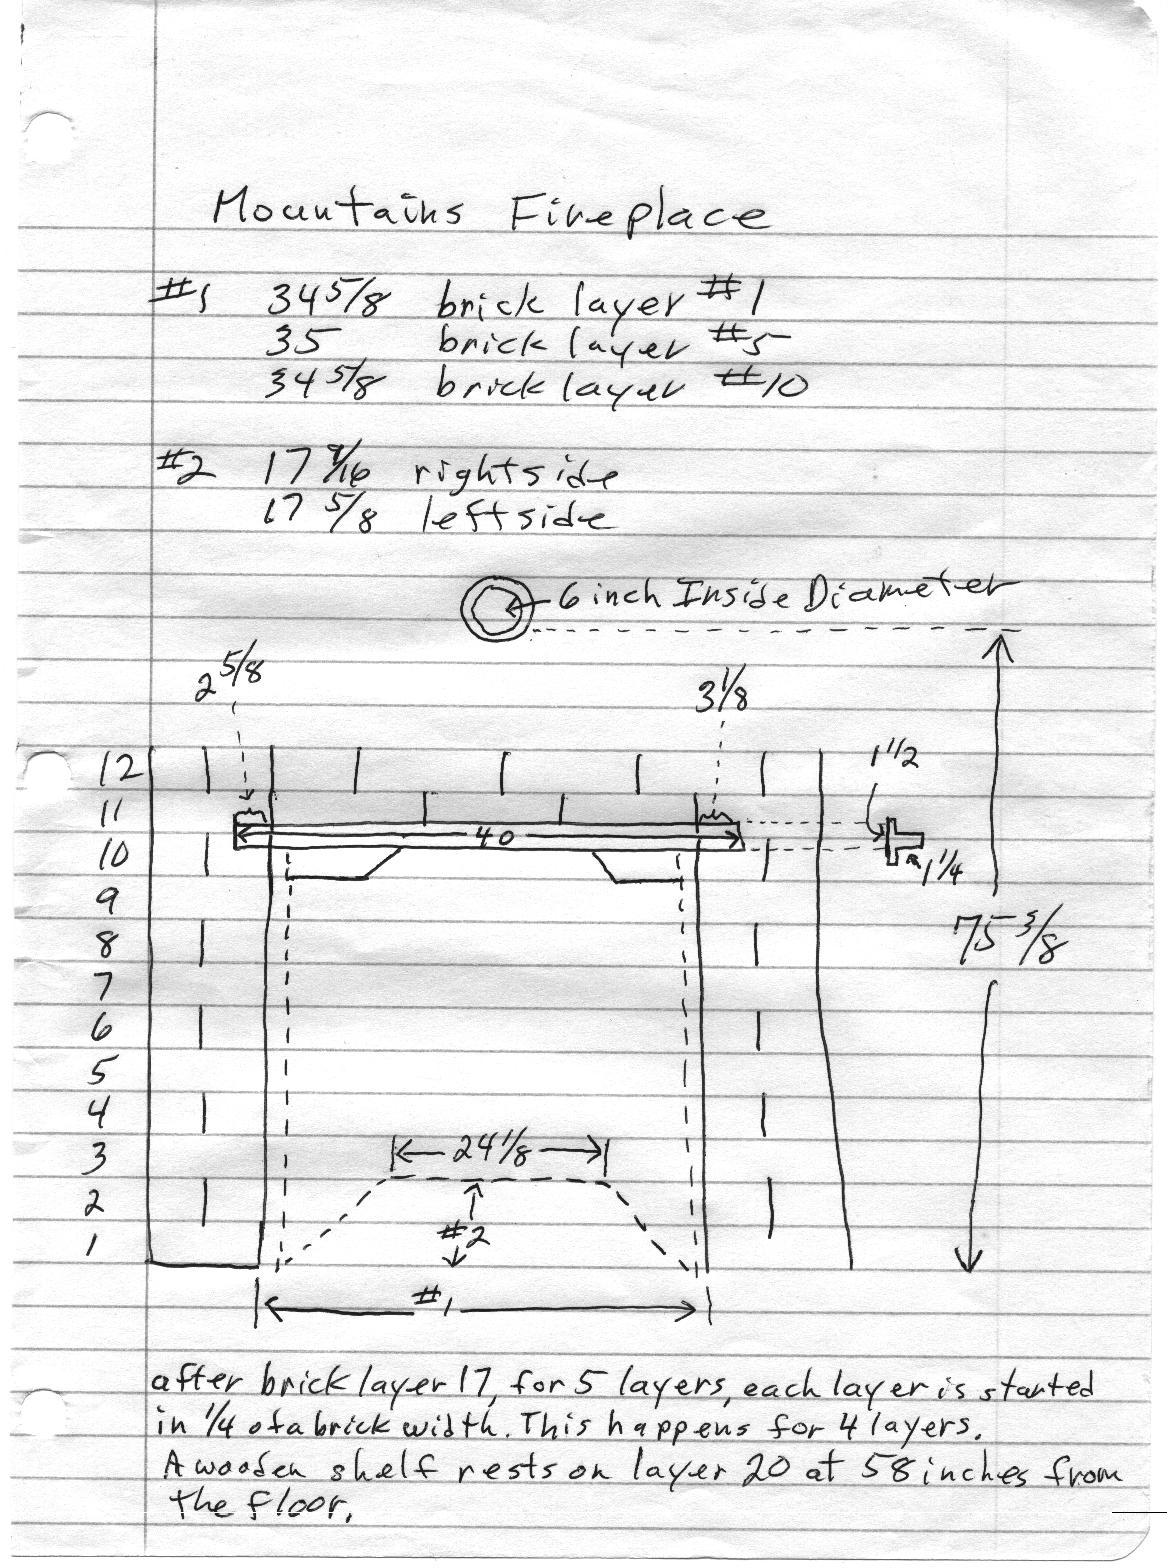 Mountains Fireplace
#1 34 5/8 brick layer #1
35 brick layer #5
34 5/8 brick layer #10
#2 17 9/16 rightside
17 5/8 leftside
6 inch Inside Diameter
2 5/8
3 1/8
12
1 1/2
11
40
10
1 1/4
9
8
75 3/8
7
6
5
4
3
24 1/8
2
#2
1
#1
after brick layer 17, for 5 layers, each layer is started
in 1/4 of a brick width. This happens for 4 layers.
A wooden shelf rests on layer 20 at 58 inches from
the floor.